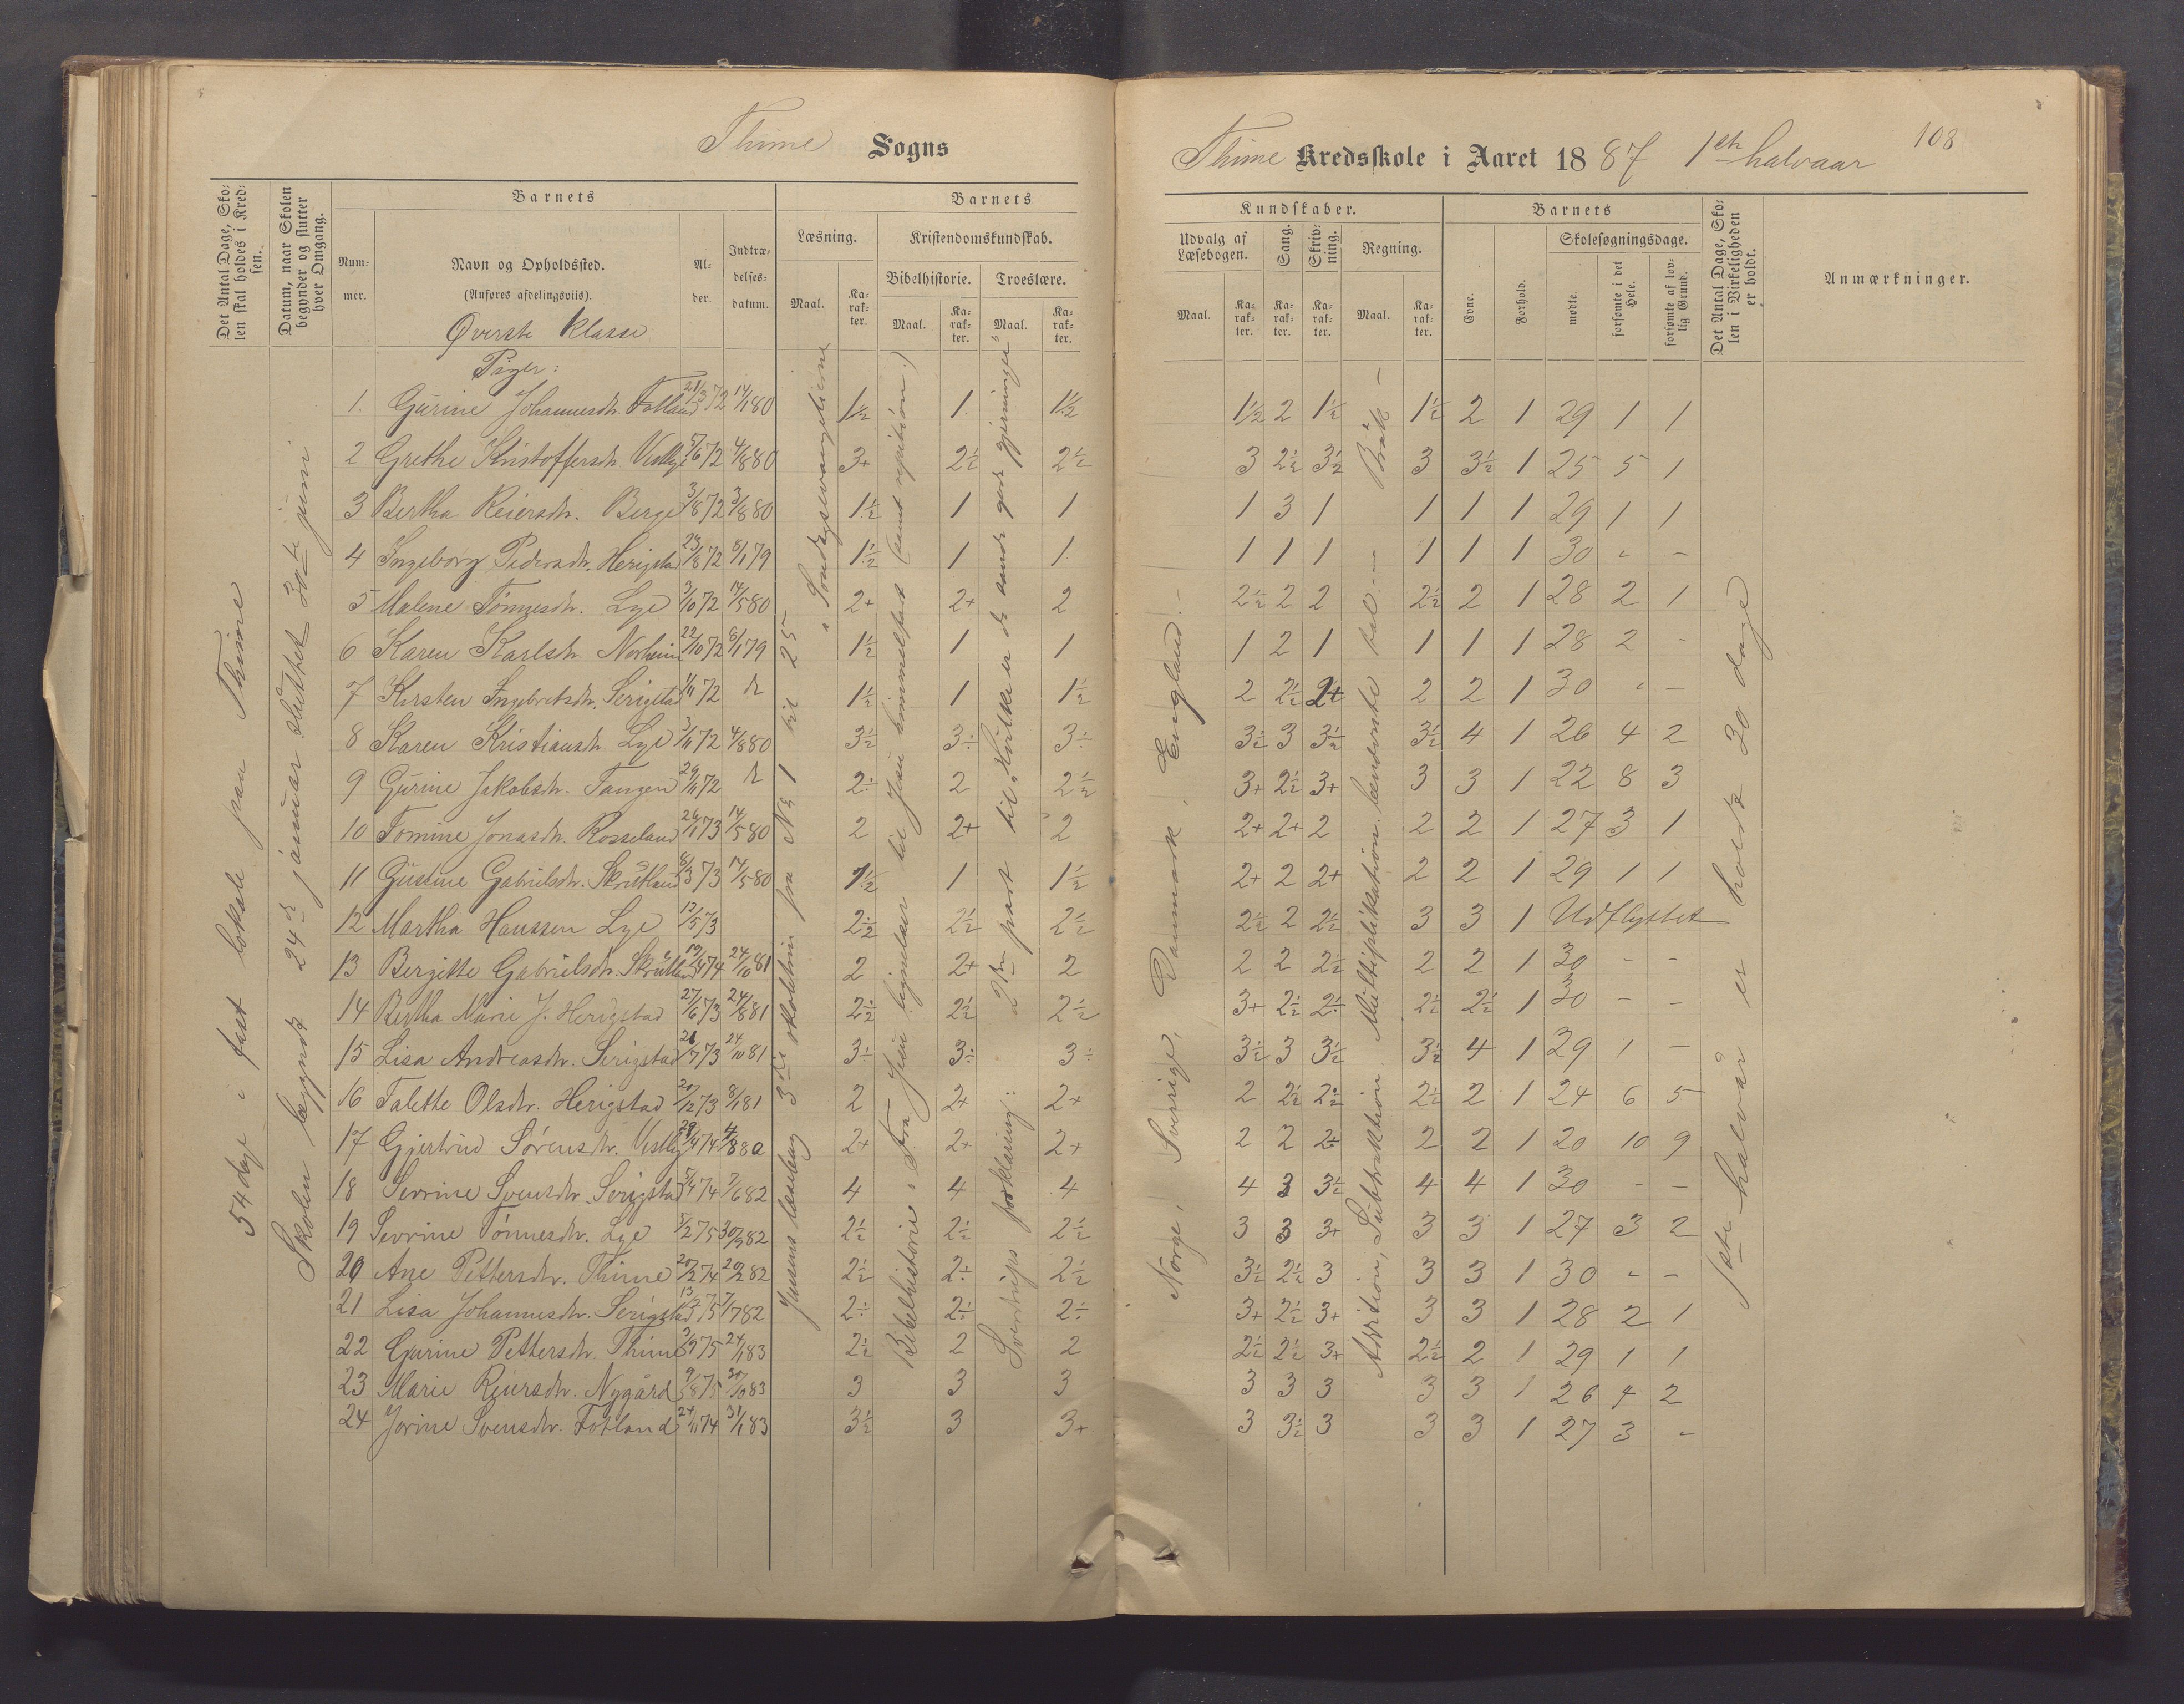 Thime Sogns
Det Antal Dage, Sko-
len skal holdes i Kred-
sen.
Datum, naar Skolen
begynder og slutter
hver Omgang.
Barnets
Num-
mer.
Navn og Opholdssted.
(Anføres afdelingsviis).
Al-
der.
Indtræ-
delses-
datum.
Barnets
Læsning.
Kristendomskundskab.
Maal.
Ka-
rak-
ter.
Bibelhistorie.
Troeslære.
Maal.
Ka-
rak-
ter.
Maal.
Ka-
rak-
ter.
54 dage i fast lokale paa Thime
Skolen begyndt 24de januar sluttet 30te juni.
Øverste Klasse
Piger:
1. Gurine Johannesdtr. Fotland 21/3 72 14/1 80 1½ 1 1½
2 Grethe Kristoffersdtr. Vestly 5/6 72 4/8 80 3+ 2½ 2½
3 Bertha Reiersdtr. Berge 3/8 72 3/8 80 1½ 1 1
4 Ingeborg Pedersdtr. Herigstad 23/8 72 8/1 79 1½ 1 1
5 Malene Tønnesdtr. Lye 3/10 72 14/5 80 2+ 2+ 2
6 Karen Karlsdtr. Norheim 22/10 72 8/1 79 1½ 1 1
7 Kirsten Ingebretsdtr. Serigstad 1/11 72 1½ 1 1½
8 Karen Kristiansdtr. Lye 3/11 72 4/8 80 3½ 3÷ 3÷
9 Gurine Jakobsdtr. Tangen 29/11 72 2÷ 2 2½
10 Tomine Jonasdtr. Rosseland 26/1 73 14/5 80 2 2+ 2
11 Gustine Gabrielsdtr. Skrutland 8/3 73 14/5 80 1½ 1 1½
12 Martha Hanssen Lye 12/5 73 2½ 2½ 2½
13 Bergitte Gabrielsdtr. Skrutland 19/4 74 24/10 81 2 2+ 2
14 Bertha Marie J. Herigstad 27/6 73 24/8 81 2½ 2½ 2½
15 Lisa Andreasdtr. Serigstad 21/7 73 24/10 81 3÷ 3÷ 3÷
16 Talette Olsdtr. Herigstad 20/12 73 8/1 81 2 2+ 2+
17 Gjertrud Sørensdtr. Vestly 29/4 74 4/8 80 2+ 2+ 2+
18 Serine Svensdtr. Serigstad 5/4 74 7/6 82 4 4 4
19 Sevrine Tønnesdtr. Lye 5/2 75 30/9 82 2½ 2½ 2½
20 Ane Pettersdtr. Thime 20/2 74 20/2 82 2½ 2÷ 2½
21 Lisa Johannesdtr. Serigstad 75 7/7 82 2÷ 2÷ 2÷
22 Gurine Pettersdtr. Thime 3/9 75 24/1 83 2½ 2 2
23 Marie Reiersdtr. Nygård 9/8 75 10 83 3 3 3
24 Jorine Svensdtr. Fotland 24/11 74 31/1 83 3½ 3 3+
Jensens læsebog 3die skoletrin fra No 1 til 25
"Søndagsevangelierne
Bibelhistorie. Fra Jesu lignelser til Jesu himmelfart (samt repition.)
Sverdrups forklaring: 2den part til "Hvilke er de sande gode gjerninger"
Thime Kredsskole i Aaret 1887 1ste halvaar
108
Kundskaber.
Udvalg af
Læsebogen.
Sang.
Skriv-
ning.
Regning.
Maal.
Ka-
rak-
ter.
Ka-
rak-
ter.
Ka-
rak-
ter.
Maal.
Ka-
rak-
ter.
Barnets
Evne.
Forhold.
Skolesøgningsdage.
mødte.
forsømte i det
Hele.
forsømte af lov-
lig Grund.
Det Antal Dage, Sko-
len i Virkeligheden
er holdt.
Anmærkninger.
1½ 2 1½ 1½ 2 1 29 1 1
3 2½ 3½ 3 3½ 1 25 5 1
1 3 1 1 1 1 29 1 1
1 1 1 1 1 1 30 - -
2½ 2 2 2½ 2 1 28 2 1
1 2 1 1 1 1 28 2 -
2 2½ 2+ 2 2 1 30 - -
3½ 3 3½ 3½ 4 1 26 4 2
3+ 2½ 3+ 3 3 1 22 8 3
2+ 2+ 2 2 2 1 27 3 1
2+ 2 2+ 2 2 1 29 1 1
2½ 2 2½ 3 3 1 Udflyttet
2 2 2½ 2 2 1 30 - -
3+ 2½ 2÷ 2½ 2½ 1 30 - -
3½ 3 3½ 3½ 4 1 29 1 -
2 2½ 2÷ 2½ 2 1 24 6 5
2 2 2+ 2 2 1 20 10 9
4 3 3½ 4 4 1 30 - -
3 3 3+ 3 3 1 27 3 2
3½ 2½ 3 3 3 1 30 - -
3+ 2½ 3+ 3 3 1 28 2 1
2½ 2½ 3+ 2½ 2 1 29 1 1
3 3 3 3 3 1 26 4 2
3 3½ 3 3 3 1 27 3 -
Norge, Sverrige, Danmark, England.
Addition, Subtraktion Multiplikation. benævnte tal - Brøk -
1ste halvår er holdt 30 dage